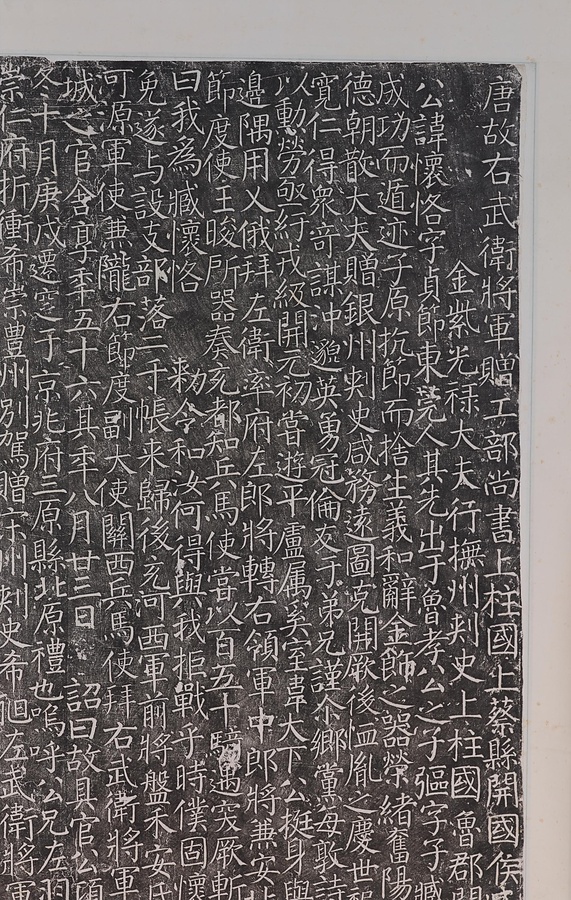 唐故右武衛將軍贈工部尚書上柱國上蔡縣開國侯
金紫光祿大夫行撫州刺史上柱國魯郡開
公諱懷恪字貞節東莞人其先出于魯孝公之子彄字子臧
成功而遁迹子原抗節而捨生義和辭金飾之器榮緒奮陽
德朝散大夫贈銀州刾史咸務遠圖克開厥後恤胤之慶世
寬仁得衆奇謀沖邈英勇冠倫友于弟兄謹介鄉黨每敢詩
以動勞亟紆戎級開元初嘗遊平盧属奚室韋大下公挺身與
邊隅用乂俄拜左衛率府左郎將轉右領軍中郎將兼安
節度使王晙所器奏充都知兵馬使嘗以百五十騎遇突厥斬
曰我爲臧懷恪敕令和汝何得與我拒戰乎時僕固懷
免遂与設支部落二千帳来歸後充河西軍前將盤禾安氏
河源軍使兼隴右節度副大使關西兵馬使拜右武衛將軍
城之官舍享年五十六其年八月廿三日詔曰故具官公
冬十月庚戌遷窆于京兆府三原縣北原禮也嗚呼公兄左羽
崇仁府折衝希崇豐州別駕贈宋州刾史希左武衛將軍